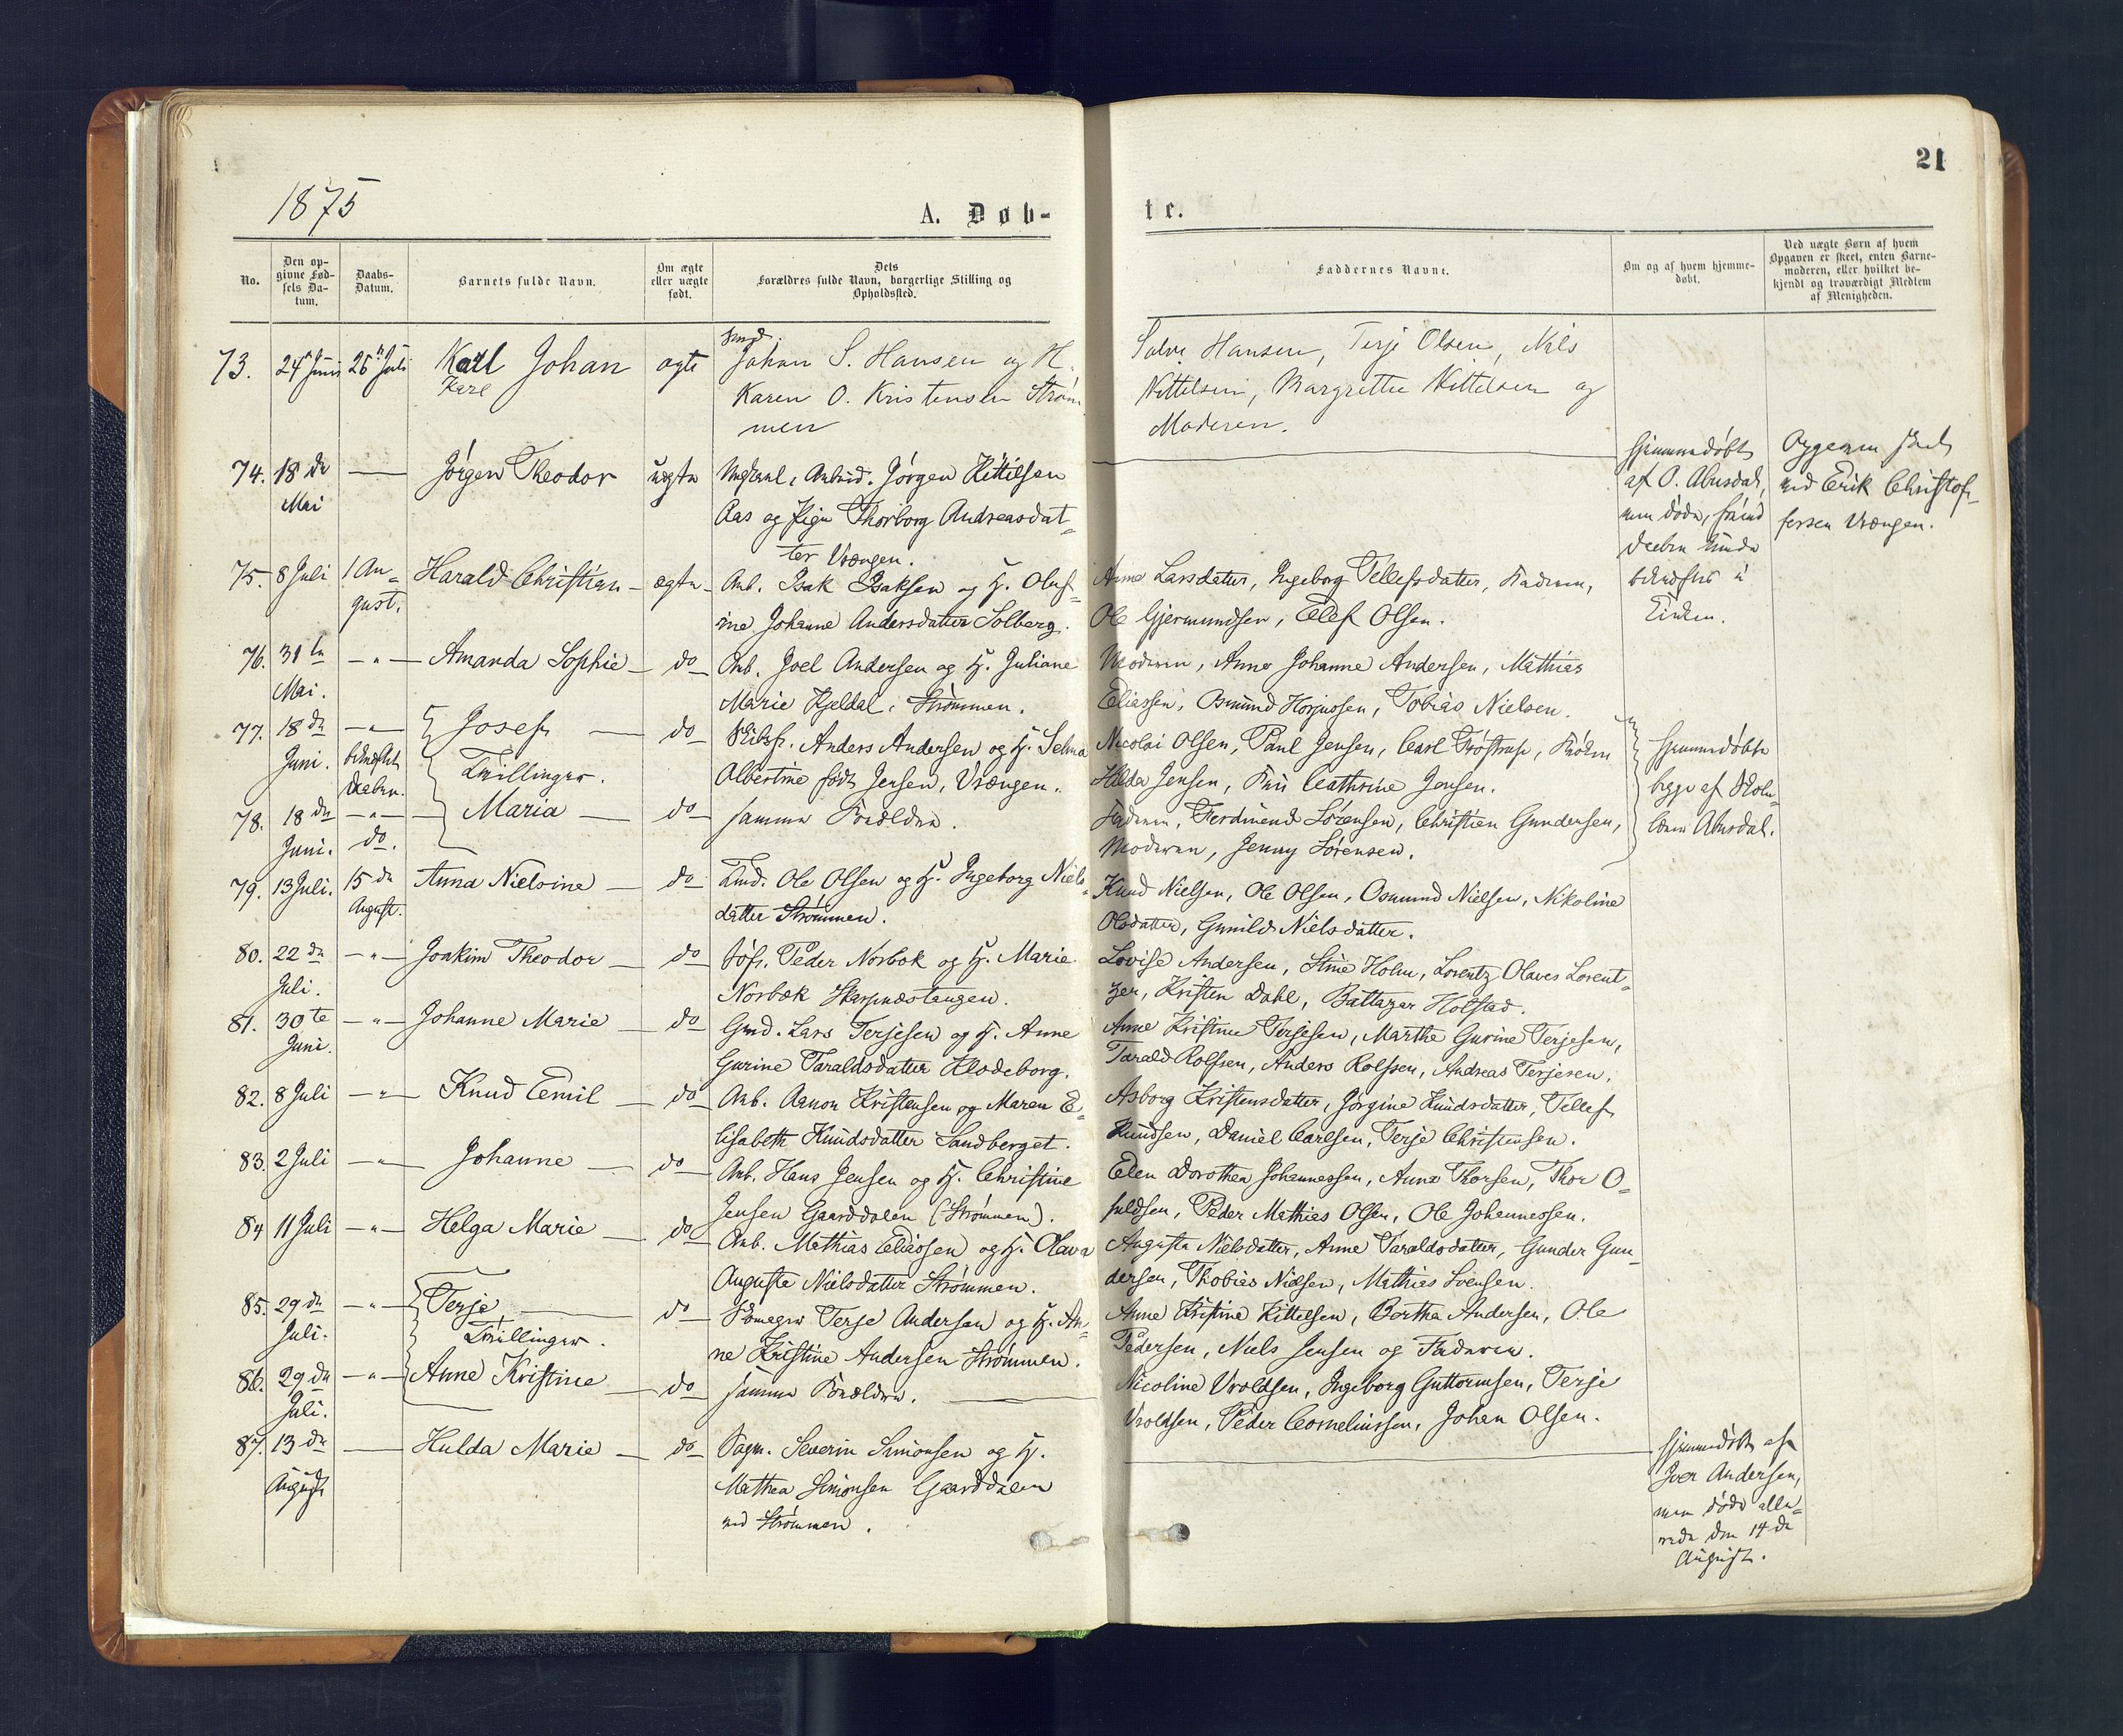 21
1875
A. Døb-
te.
No.
Den op-
givne Fød-
sels Da-
tum.
Daabs-
Datum.
Barnets fulde Navn.
Om ægte
eller uægte
født.
Dets
Forældres fulde Navn, borgerlige Stilling og
Opholdssted.
Faddernes Navne.
Om og af hvem hjemme-
døbt.
Ved uægte Børn af hvem
Opgaven er skeet, enten Barne-
moderen, eller hvilket be-
kjendt og troværdigt Medlem
af Menigheden.
73. 24 Juni 25 Juli Karl Johan ægte Johan S. Hansen og H.
Karl
Karen O. Kristensen Strøm
men
Hansen, Terje Olsen, Nils
Kittilsen, Margrethe Kittelsen og
Moderen.
74. 18de Mai — Jørgen Theodor uægte Ungkarl, Arbeid. Jørgen Kittilsen
Aas og Pige Thorborg Andreasdat-
ter Vrængen.
Hjemmedøbt
af O. Abusdal,
men døde, førend
Daaben kunde
bekræftes i
Kirken.
Opgaven skeet
ved Erik Christof-
fersen Vrængen.
75. 8 Juli 1 Au-
gust. Harald Christian — ægte — Arb. Isak Isaksen og H. Oluf-
ine Johanne Andersdatter Solberg.
Anne Larsdatter, Ingeborg Tellefsdatter, Faderen,
Ole Gjermundsen, Ellef Olsen.
76. 31te
Mai. — " — Amanda Sophie — do — Arb. Joel Andersen og H. Juliane
Marie Kjeldal, Strømmen.
Moderen, Anne Johanne Andersen, Mathias
Eliassen, Osmund Horjussen, Tobias Nielsen.
77. 18de
Juni. — " —
bekræftet
Daaben. Josef — do — Skibsf. Anders Andersen og H. Selma
Tvillinger. Albertine født Jensen, Vrængen.
Nicolai Olsen, Paul Jensen, Carl Trøstrup, Frøken
Hilda Jensen, Fru Cathrine Jensen.
Hjemmedøbte
begge af
Abusdal.
78. 18de
Juni. — " —
do. Maria — do — samme Forældre.
Faderen, Ferdinend Sørensen, Christian Gundersen,
Moderen, Jenny Sørensen.
79. 13 Juli. 15de
August. Anna Nielsine — do — Ole Olsen og H. Ingeborg Niels-
datter Strømmen.
Knud Nielsen, Ole Olsen, Osmund Nielsen, Nikoline
Olsdatter, Gunild Nielsdatter.
80. 22de
Juli. — " — Joakim Theodor — do — Søf. Peder Norbok og H. Marie
Norbæk Skarpnæstangen.
Lovise Andersen, Stine Holm, Lorentz Olaves Lorent-
zen, Kristen Dahl, Baltazar Holstad.
81. 30te
Juni. — " — Johanne Marie — do — Gmd. Lars Terjesen og H. Anne
Gurine Taraldsdatter Klodeborg.
Anne Kristine Terjesen, Marthe Gurine Terjesen,
Tarald Rolfsen, Anders Rolfsen, Andreas Terjesen.
82. 8 Juli — " — Knud Emil — do — Arb. Aanon Kristensen og Maren E-
lisabeth Knudsdatter Sandberget.
Asborg Kristensdatter, Jørgine Knudsdatter, Tellef
Knudsen, Daniel Carlsen, Terje Christensen.
83. 2 Juli — " — Johanne — do — Arb. Hans Jensen og H. Christine
Jensen Gaarddalen (Strømmen).
Elen Dorothea Johannessen, Anne Thorsen, Thor O-
suldsen, Peder Mathias Olsen, Ole Johannessen.
84 11 Juli — " — Helga Marie — do — Arb. Mathias Eliassen og H. Olava
Auguste Nielsdatter Strømmen.
Augusta Nielsdatter, Anne Taraldsdatter, Gunder Gun-
dersen, Thobias Nielsen, Mathias Svensen.
85. 29de
Juli. — " — Terje — do — Terje Andersen og H. An-
Tvillinger. ne Kristine Andersen Strømmen.
Anne Kristine Kittelsen, Bertha Andersen, Ole
Pedersen, Niels Jensen og Faderen.
86. 29de
Juli. — " — Anne Kristine — do — samme Forældre. —
Nicoline Vroldsen, Ingeborg Guttormsen, Terje
Vroldsen, Peder Corneliussen, Johan Olsen.
87. 13de
August — Hulda Marie — do — Severin Simonsen og H.
Mathea Simonsen Gaarddalen
ved Strømmen.
Hjemmedøbt af
Iver Andersen,
men døde alle-
rede den 14de
August.